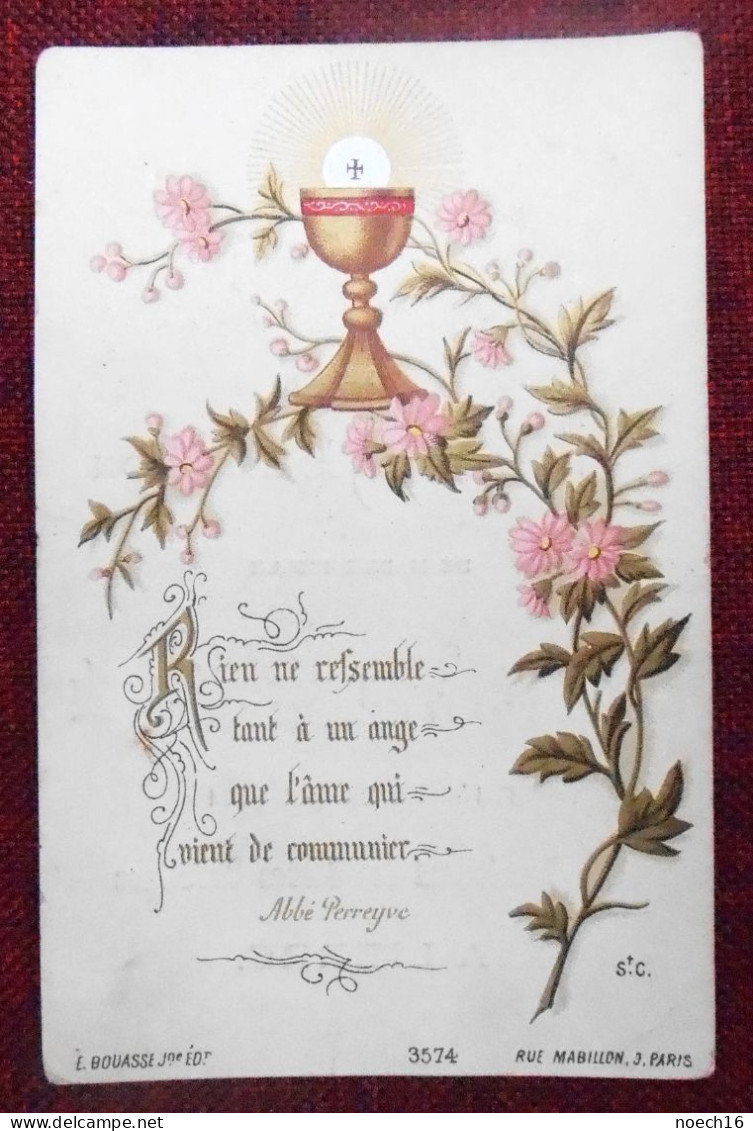 Rien ne ressemble
tant à un ange
que l'âme qui
vient de communier
Abbé Perreyve
St. C.
E. BOUASSE Jne ÉDT
3574
RUE MABILLON, 9, PARIS
noech16